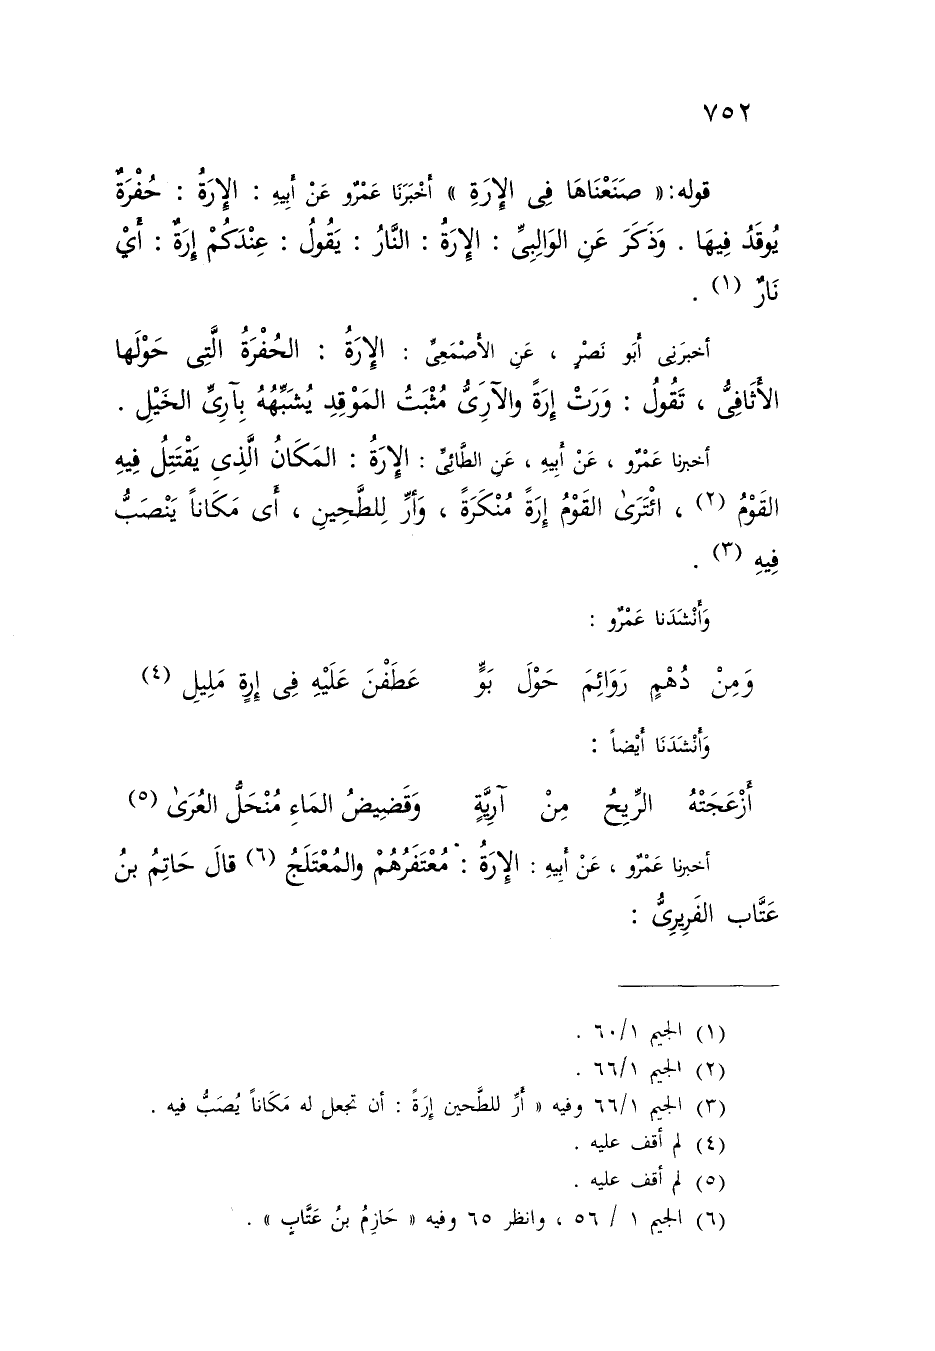 ٧٥٢
قوله: « صَنَعْنَاهَا فِى الإِرَةِ » أَخْبَرَنَا عَمْرٌو عَنْ أَبِيهِ : الإِرَةُ : حُفْرَةٌ
يُوقَدُ فِيهَا . وَذَكَرَ عَنِ الوَالِبِىِّ : الإِرَةُ : النَّارُ : يَقُولُ : عِنْدَكُمْ إِرَةٌ : أَىْ
نَارٌ (١) .
أخبرَنِى أَبَو نَصْرٍ ، عَنِ الأَصْمَعِىِّ : الإِرَةُ : الحُفْرَةُ الَّتِى حَوْلَها
الأَثَافِىُّ ، تَقُولُ : وَرَتْ إِرَةً والآرَىُّ مُثْبَتُ المَوْقِدِ يُشَبِّهُهُ بِآرِىِّ الخَيْلِ .
أخبرنا عَمْرٌو ، عَنْ أَبِيهِ ، عَنِ الطَّائِىِّ : الإِرَةُ : المَكَانُ الَّذِى يَقْتَتِلُ فِيهِ
القَوْمُ (٢) ، ائْتَرَىٰ القَوْمُ إِرَةً مُنْكَرَةً ، وَأَرِّ لِلطَّحِينِ ، أَى مَكَاناً يَنْصَبُّ
فِيهِ (٣) .
وَأَنْشَدَنا عَمْرٌو :
وَمِنْ دُهْمٍ رَوَائِمَ حَوْلَ بَوٍّ عَطَفْنَ عَلَيْهِ فِى إِرةٍ مَلِيلِ (٤)
وَأَنْشَدَنَا أَيْضاً :
أَزْعَجَتْهُ الرِّيحُ مِنْ آرِيَّةٍ وَقَضِيضُ المَاءِ مُنْحَلُّ العُرَىٰ (٥)
أخبرنا عَمْرٌو ، عَنْ أَبِيهِ : الإِرَةُ : مُعْتَفَرُهُمْ والمُعْتَلَجُ (٦) قالَ حَاتِمُ بنُ
عَتَّاب الفَرِيرِىُّ :
(١) الجيم ٦٠/١ .
(٢) الجيم ٦٦/١ .
(٣) الجيم ٦٦/١ وفيه « أَرِّ للطَّحين إِرَةً : أن تجعل له مَكَاناً يُصَبُّ فيه .
(٤) لم أقف عليه .
(٥) لم أقف عليه .
(٦) الجيم ١ / ٥٦ ، وانظر ٦٥ وفيه « حَازِمُ بنُ عَتَّابٍ » .